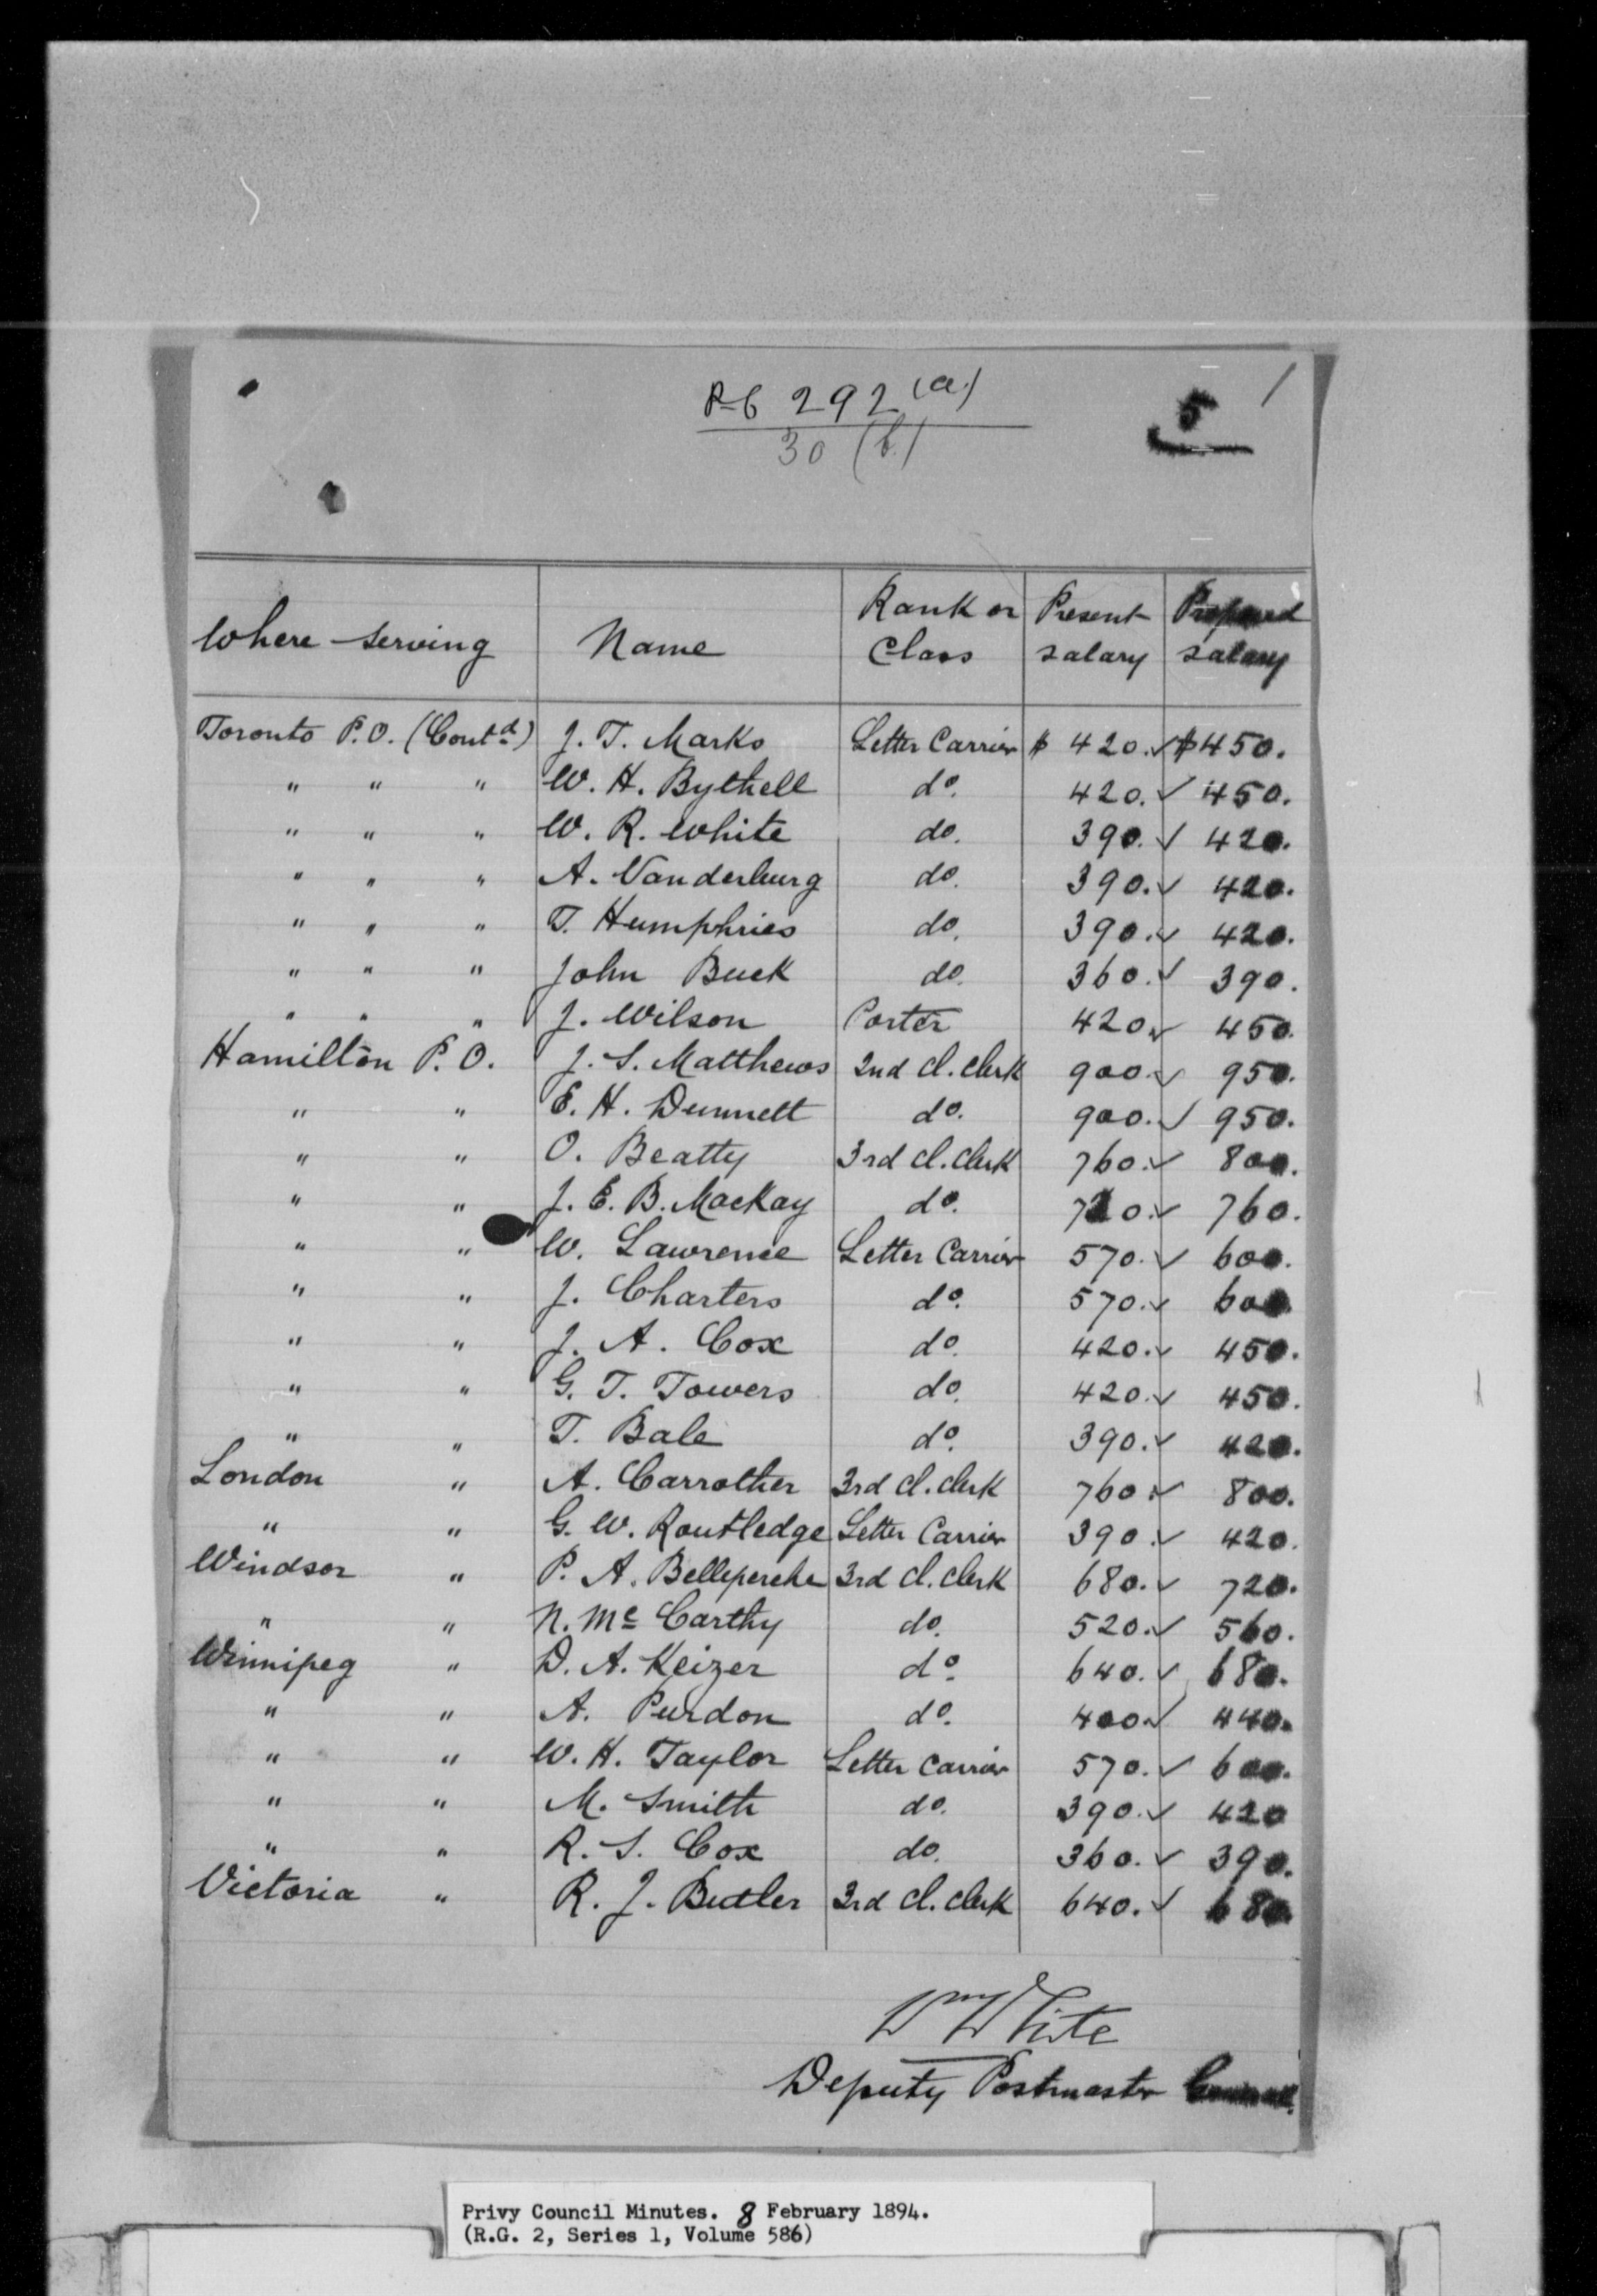 P.C 292 (a)
30 (b)
5
Where serving Name Rank or Class Present salary Proposed salary
Toronto P.O. (Contd) J. T. Marks Letter Carrier $ 420. ✓ $450.
" " " W. H. Bythell do. 420. ✓ 450.
" " " W. R. White do. 390. ✓ 420.
" " " A. Vanderburg do. 390. ✓ 420.
" " " T. Humphries do. 390. ✓ 420.
" " " John Buck do. 360. ✓ 390.
" " " J. Wilson Porter 420 ✓ 450.
Hamilton P. O. J. S. Matthews 2nd cl. clerk 900. ✓ 950.
" " E. H. Dunnett do. 900. ✓ 950.
" " O. Beatty 3rd cl. clerk 760. ✓ 800.
" " J. E. B. MacKay do. 720. ✓ 760.
" " W. Lawrence Letter Carrier 570. ✓ 600.
" " J. Charters do. 570. ✓ 600.
" " J. A. Cox do. 420. ✓ 450.
" " G. T. Towers do. 420. ✓ 450.
" " T. Bale do. 390. ✓ 420.
London " A. Carrother 3rd cl. clerk 760 ✓ 800.
" " G. W. Routledge Letter Carrier 390. ✓ 420.
Windsor " P. A. Belleperche 3rd cl. clerk 680. ✓ 720.
" " N. McCarthy do. 520. ✓ 560.
Winnipeg " D. A. Keizer do. 640. ✓ 680.
" " A. Purdon do. 400 ✓ 440.
" " W. H. Taylor Letter Carrier 570. ✓ 600.
" " M. Smith do. 390. ✓ 420
" " R. S. Cox do. 360. ✓ 390.
Victoria " R. J. Butler 3rd cl. clerk 640. ✓ 680.
Wm White
Deputy Postmaster General.
Privy Council Minutes. 8 February 1894.
(R.G. 2, Series 1, Volume 586)